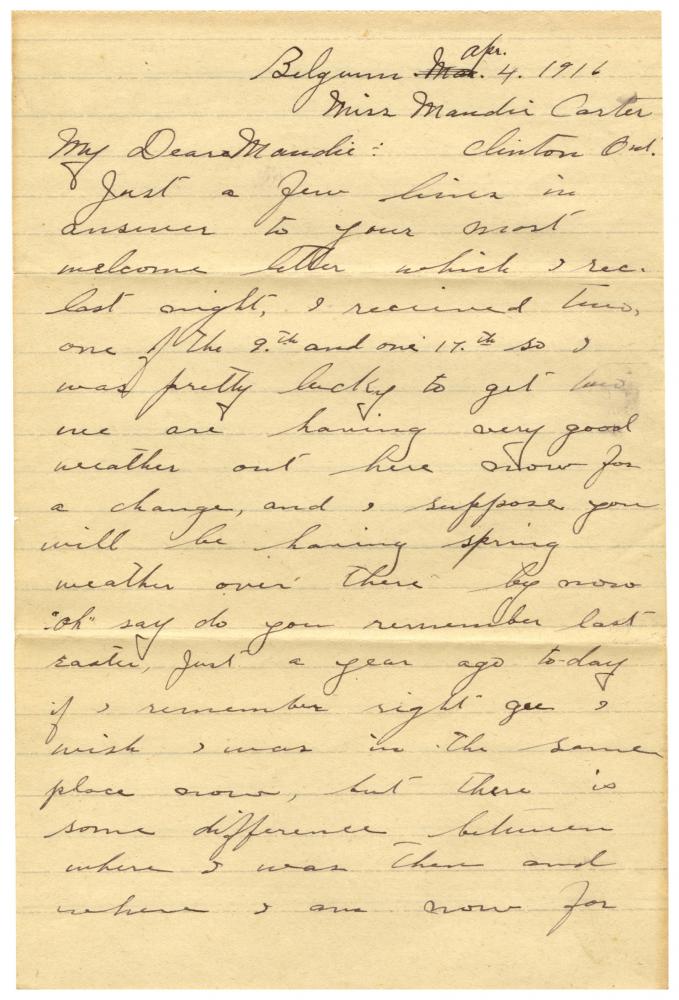 apr.
Belgium Mar. 4. 1916
Miss Maudie Carter
My Dear Maudie: Clinton Ont.
Just a few lines in
answer to your most
welcome letter which I rec.
last night, I recieved two,
one of the 9.th and one 17.th so I
was pretty lucky to get two
we are having very good
weather out here now for
a change, and I suppose you
will be having spring
weather over there by now
"oh" say do you remember last
easter, just a year ago to-day
if I remember right gee I
wish I was in the same
place now, but there is
some difference between
where I was then and
where I am now for